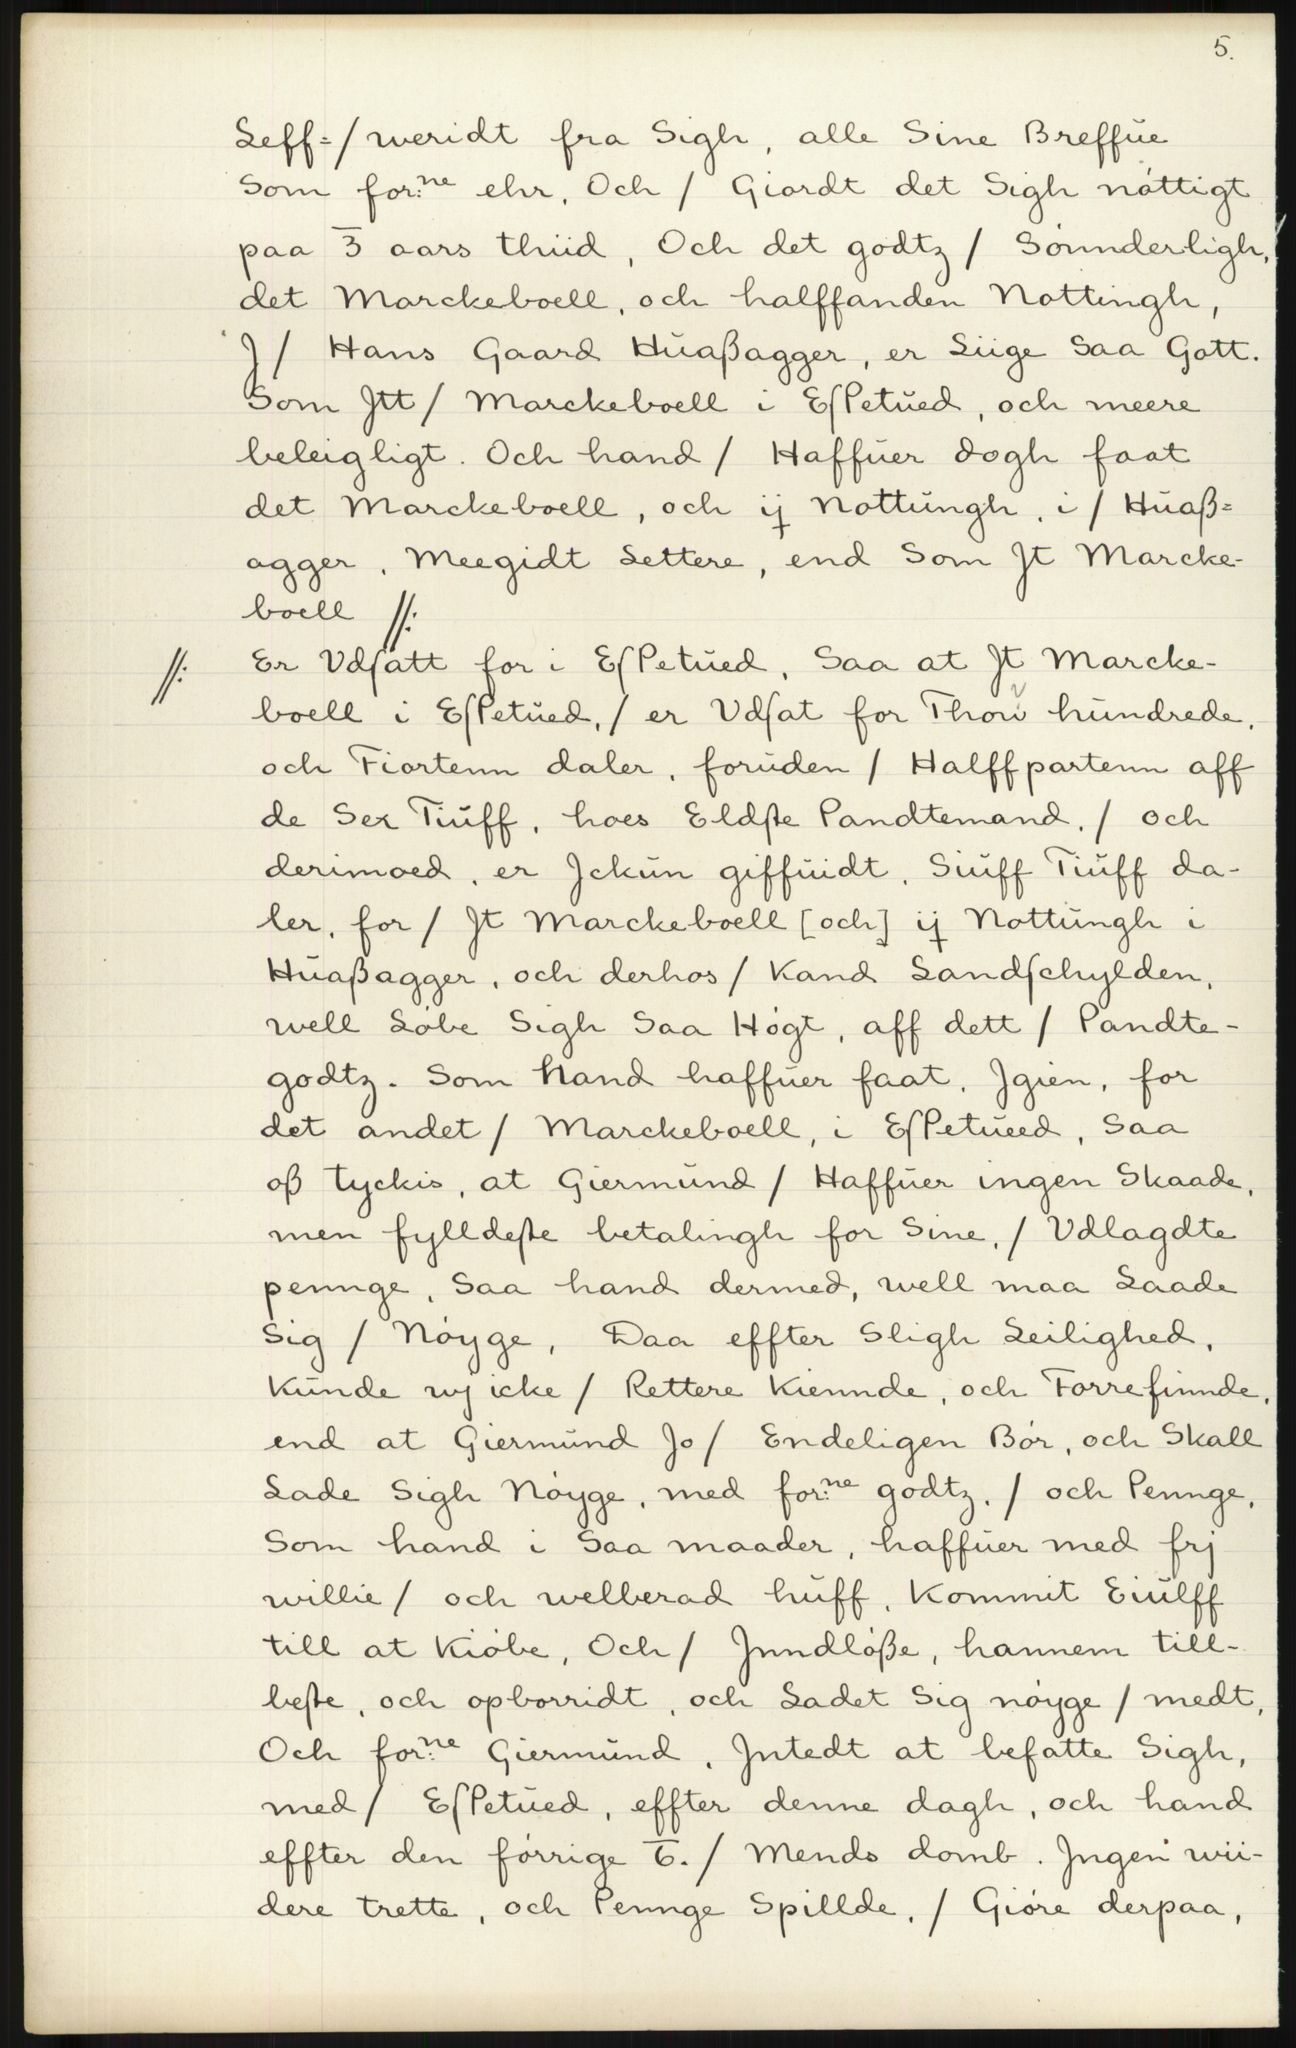 5.
Leff=/ weridt fra Sigh, alle Sine Breffue
Som for:ne ehr, Och / Giordt det Sigh nóttigt
paa 3̅ aars thiid, Och det godtz / Sónnderligh,
det Marckeboell, och halffanden Nottingh,
J / Hans Gaard Huaßagger, er Liige Saa Gott.
Som Jtt / Marckeboell i Eſpetued, och meere
beleigligt. Och hand / Haffuer dogh faat
det Marckeboell, och ij Nottungh, i / Huaß=
agger, Meegidt Lettere, end Som Jt Marcke-
boell //:
//: Er Vdſatt for i Eſpetued, Saa at Jt Marcke-
boell i Eſpetued, / er Vdſat for Thou hundrede,
och Fiortenn daler, foruden / Halffpartenn aff
de Sex Tiuff, hoes Eldſte Pandtemand, / och
derimoed, er Jckun giffuidt, Siuff Tiuff da-
ler, for / Jt Marckeboell [och] ij Nottungh i
Huaßagger, och derhos / Kand Landſchylden,
well Lóbe Sigh Saa Hógt, aff dett / Pandte-
godtz. Som hand haffuer faat, Jgien, for
det andet / Marckeboell, i Eſpetueed, Saa
oß tyckis, at Giermund / Haffuer ingen Skaade,
men fylldeſte betalingh for Sine, / Vdlagdte
pennge, Saa hand dermed, well maa Laade
Sig / Nóyge, Daa effter Sligh Leilighed,
Kunde wj icke / Rettere Kiennde, och Forrefinnde,
end at Giermund Jo / Endeligen Bór, och Skall
Lade Sigh Nóyge, med for:ne godtz, / och Pennge,
Som hand i Saa maader, haffuer med frj
willie / och welberad huff, Kommit Eiulff
till at Kióbe, Och / Jnndlóße, hannem till-
beſte, och opborridt, och Ladet Sig nóyge / medt,
Och for:ne Giermund, Jntedt at befatte Sigh,
med / Eſpetued, effter denne dagh, och hand
effter den fórrige 6̅. / Mends domb. Jngen wii-
dere trette, och Pennge Spillde, / Gióre derpaa,